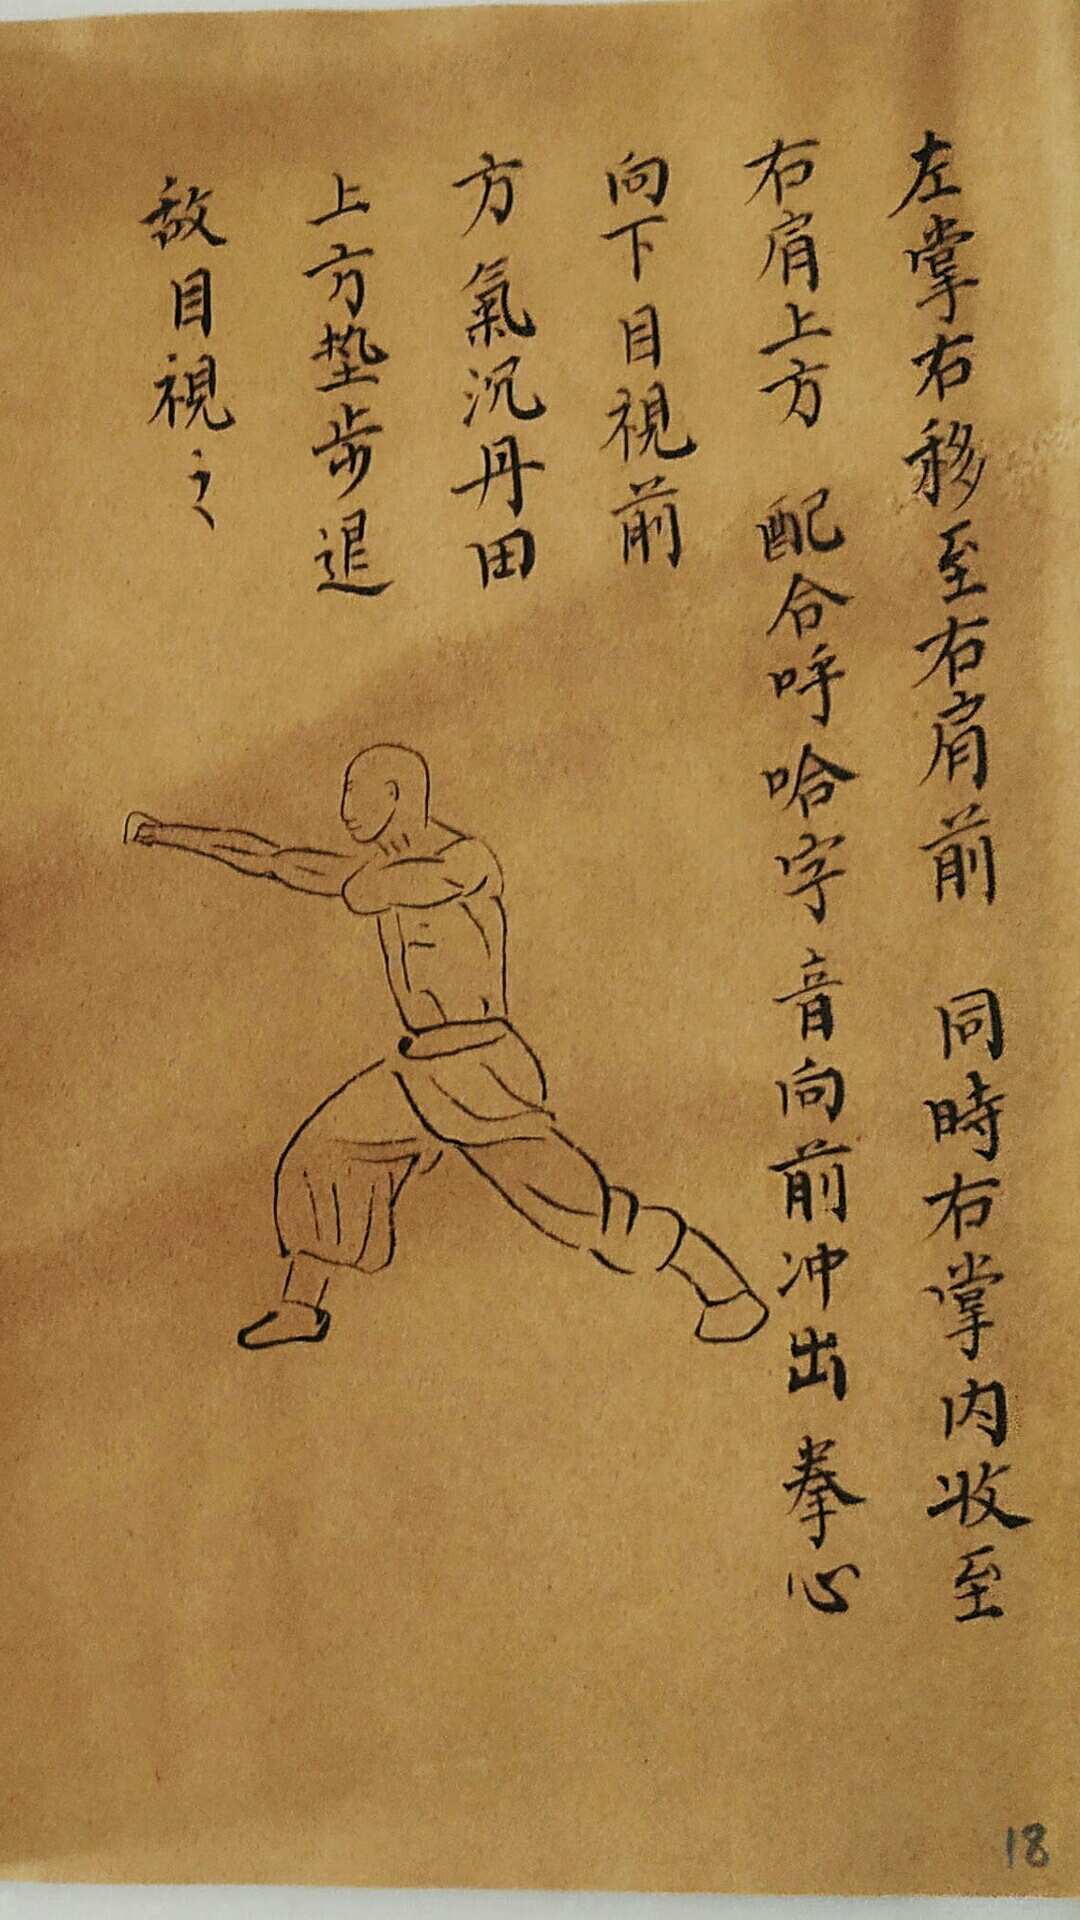 左掌右移至右肩前 同時右掌内收至
右肩上方 配合呼哈字音向前冲出拳心
向下目視前
方氣沉丹田
上方垫步退
敌目視之
18